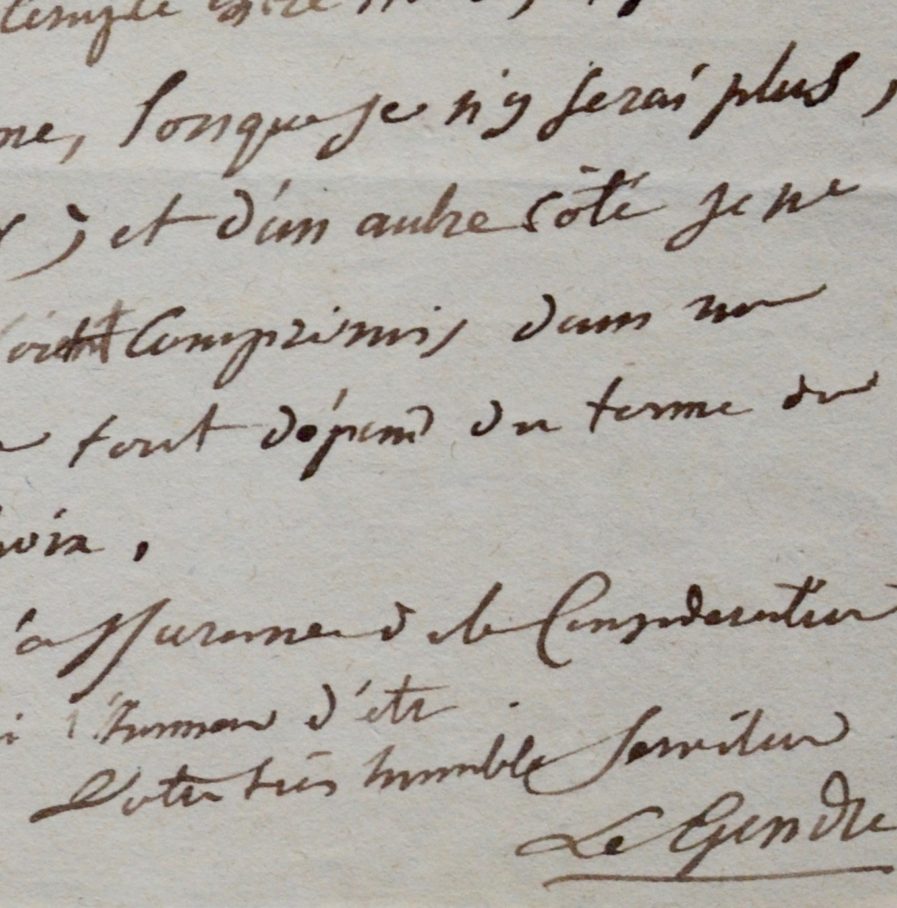 temple
me, lorsque je n'y serai plus,
; et d'un autre côté je ne
comprimis, dans
tout dépend du terme du
oix.
l'assurance de la Consideration
i l'hunneur d'etr
Votre très humble Serviteur
Le Gendre